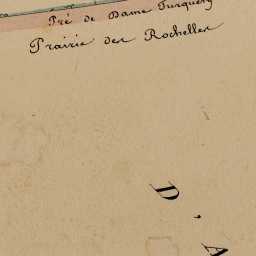 Pré de Dame Turquery
Prairie des Rochelles
D
'
A